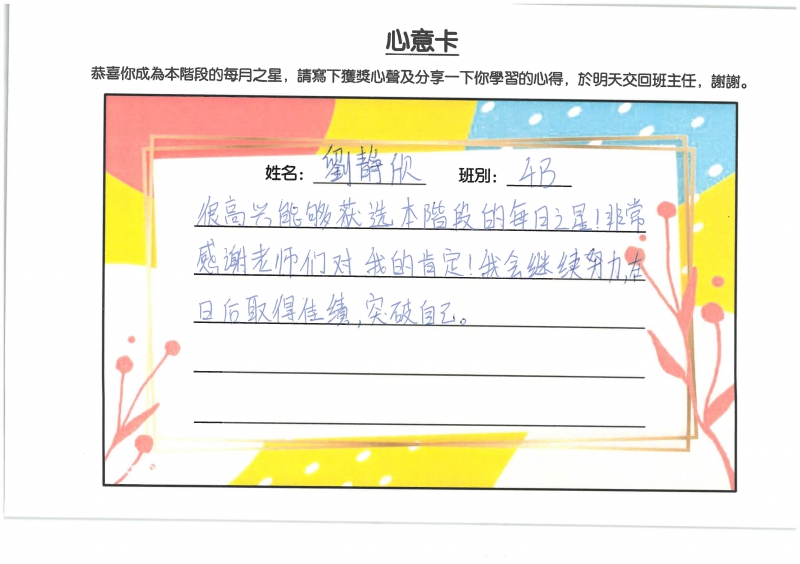 心意卡
恭喜你成為本階段的每月之星，請寫下獲獎心聲及分享一下你學習的心得，於明天交回班主任，謝謝。
姓名：劉靜欣 班別：4B
很高兴能够获选本階段的每日之星！非常
感谢老师们对我的肯定！我会继续努力，在
日后取得佳績，突破自己。